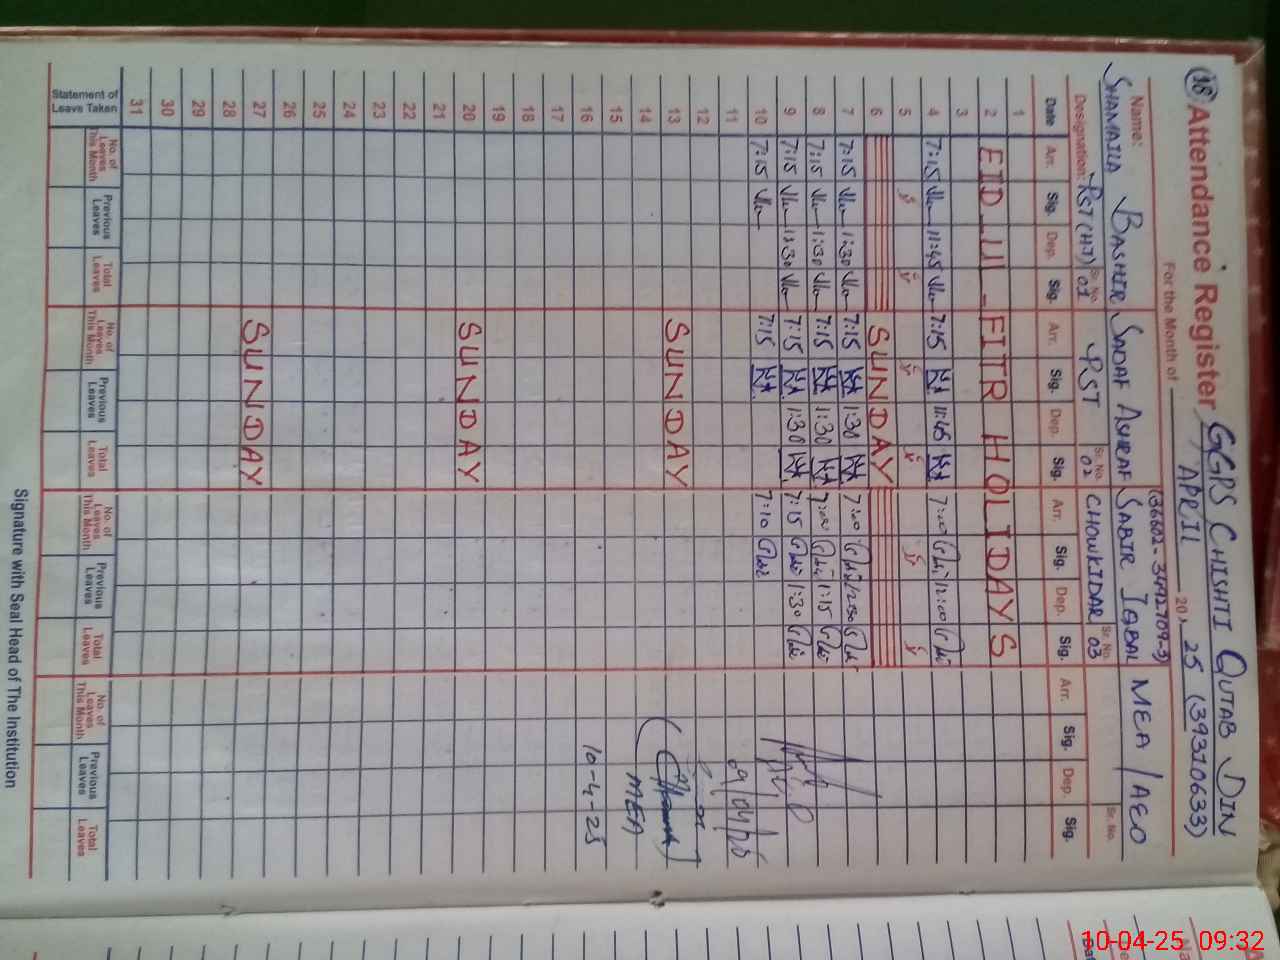 38 Attendance Register GGPS CHISHTI QUTAB DIN
For the Month of APRIL 20 25 (39310633)
(36602-3492709-3)
Name: SHAMAILA BASHIR SADAF ASHRAF SABIR IQBAL MEA / AEO
Designation: PST (HT) Sr. No. 01 PST Sr. No. 02 CHOWKIDAR Sr. No. 03 Sr. No.
Date Arr. Sig. Dep. Sig. Arr. Sig. Dep. Sig. Arr. Sig. Dep. Sig. Arr. Sig. Dep. Sig.
1
2 EID_UL_FITR HOLIDAYS
3
4 7:15 11:45 7:15 11:45 7:00 12:00
5
6 SUNDAY
7 7:15 1:30 7:15 1:30 7:00 12:50
8 7:15 1:30 7:15 1:30 7:00 1:15
9 7:15 1:30 7:15 1:30 7:15 1:30
10 7:15 7:15 7:10
11 09/04/25
12
13 SUNDAY
14 MEA
15
16 10-4-25
17
18
19
20 SUNDAY
21
22
23
24
25
26
27 SUNDAY
28
29
30
31
Statement of Leave Taken
No. of Leaves This Month Previous Leaves Total Leaves No. of Leaves This Month Previous Leaves Total Leaves No. of Leaves This Month Previous Leaves Total Leaves No. of Leaves This Month Previous Leaves Total Leaves
Signature with Seal Head of The Institution
10-04-25 09:32